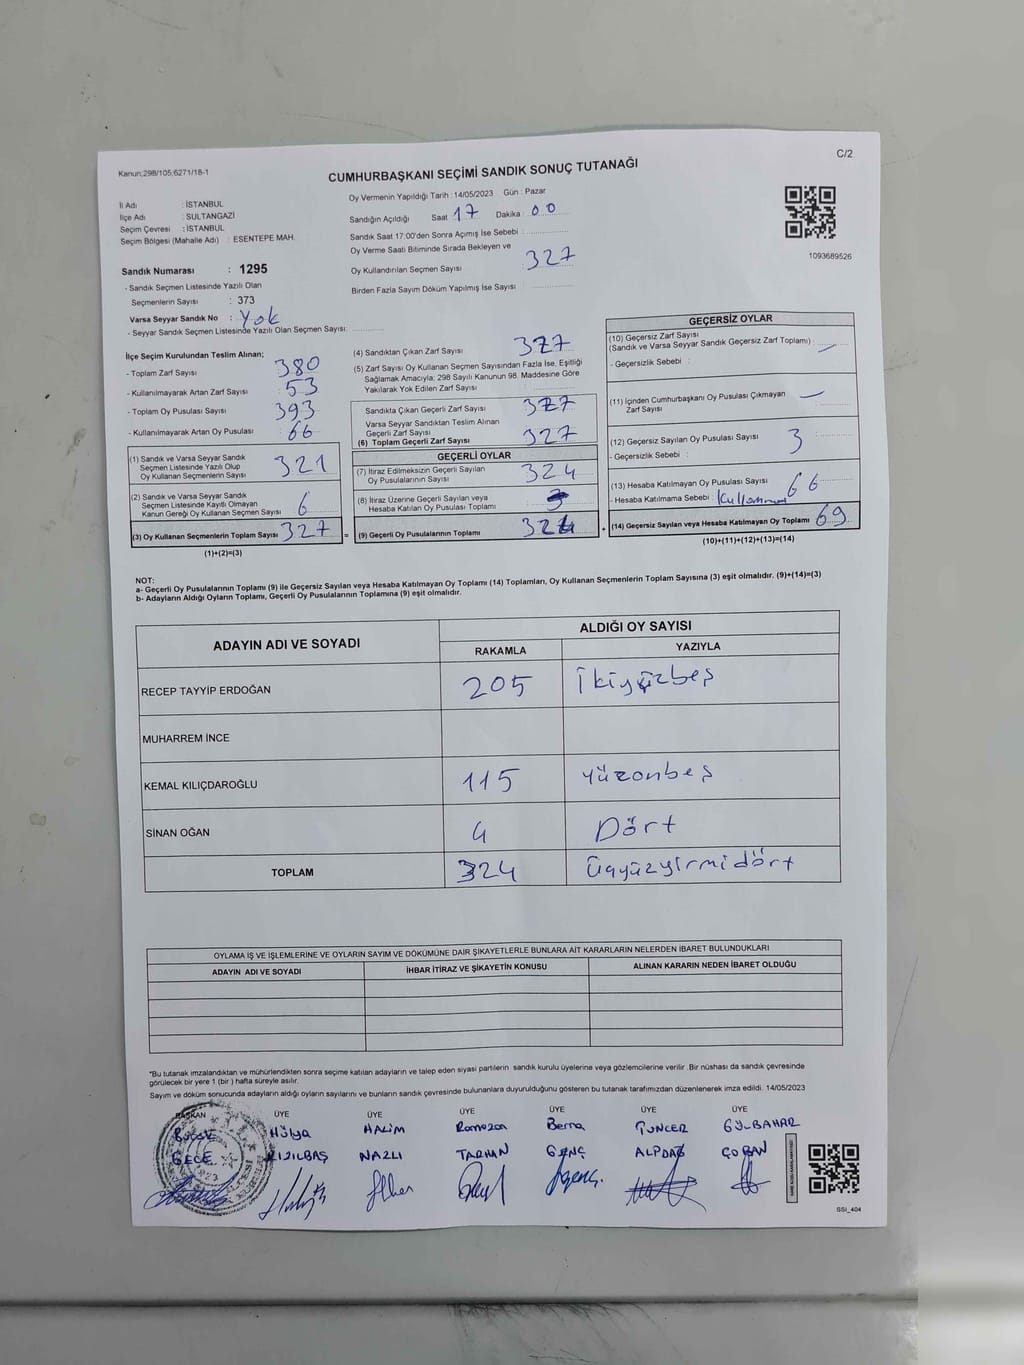 Kanun;298/105;6271/18-1
CUMHURBAŞKANI SEÇİMİ SANDIK SONUÇ TUTANAĞI
C/2
İl Adı : İSTANBUL
İlçe Adı : SULTANGAZİ
Seçim Çevresi : İSTANBUL
Seçim Bölgesi (Mahalle Adı) : ESENTEPE MAH.
Sandık Numarası : 1295
- Sandık Seçmen Listesinde Yazılı Olan
Seçmenlerin Sayısı : 373
Varsa Seyyar Sandık No : Yok
- Seyyar Sandık Seçmen Listesinde Yazılı Olan Seçmen Sayısı:
Oy Vermenin Yapıldığı Tarih : 14/05/2023 Gün : Pazar
Sandığın Açıldığı Saat 17 Dakika : 00
Sandık Saat 17:00'den Sonra Açımış İse Sebebi :
Oy Verme Saati Bitiminde Sırada Bekleyen ve
Oy Kullandırılan Seçmen Sayısı 327
Birden Fazla Sayım Döküm Yapılmış İse Sayısı :
1093689526
İlçe Seçim Kurulundan Teslim Alınan;
- Toplam Zarf Sayısı : 380
- Kullanılmayarak Artan Zarf Sayısı : 53
- Toplam Oy Pusulası Sayısı : 393
- Kullanılmayarak Artan Oy Pusulası : 66
(1) Sandık ve Varsa Seyyar Sandık
Seçmen Listesinde Yazılı Olup
Oy Kullanan Seçmenlerin Sayısı : 321
(2) Sandık ve Varsa Seyyar Sandık
Seçmen Listesinde Kayıtlı Olmayan
Kanun Gereği Oy Kullanan Seçmen Sayısı : 6
(3) Oy Kullanan Seçmenlerin Toplam Sayısı : 327 =
(1)+(2)=(3)
(4) Sandıktan Çıkan Zarf Sayısı 327
(5) Zarf Sayısı Oy Kullanan Seçmen Sayısından Fazla İse, Eşitliği
Sağlamak Amacıyla; 298 Sayılı Kanunun 98. Maddesine Göre
Yakılarak Yok Edilen Zarf Sayısı
Sandıkta Çıkan Geçerli Zarf Sayısı 327
Varsa Seyyar Sandıktan Teslim Alınan
Geçerli Zarf Sayısı
(6) Toplam Geçerli Zarf Sayısı 327
GEÇERLİ OYLAR
(7) İtiraz Edilmeksizin Geçerli Sayılan
Oy Pusulalarının Sayısı 324
(8) İtiraz Üzerine Geçerli Sayılan veya
Hesaba Katılan Oy Pusulası Toplamı
(9) Geçerli Oy Pusulalarının Toplamı 324 +
GEÇERSİZ OYLAR
(10) Geçersiz Zarf Sayısı
(Sandık ve Varsa Seyyar Sandık Geçersiz Zarf Toplamı) :
- Geçersizlik Sebebi :
(11) İçinden Cumhurbaşkanı Oy Pusulası Çıkmayan
Zarf Sayısı
(12) Geçersiz Sayılan Oy Pusulası Sayısı 3
- Geçersizlik Sebebi :
(13) Hesaba Katılmayan Oy Pusulası Sayısı 66
- Hesaba Katılmama Sebebi :
(14) Geçersiz Sayılan veya Hesaba Katılmayan Oy Toplamı 69
(10)+(11)+(12)+(13)=(14)
NOT:
a- Geçerli Oy Pusulalarının Toplamı (9) ile Geçersiz Sayılan veya Hesaba Katılmayan Oy Toplamı (14) Toplamları, Oy Kullanan Seçmenlerin Toplam Sayısına (3) eşit olmalıdır. (9)+(14)=(3)
b- Adayların Aldığı Oyların Toplamı, Geçerli Oy Pusulalarının Toplamına (9) eşit olmalıdır.
ADAYIN ADI VE SOYADI
ALDIĞI OY SAYISI
RAKAMLA YAZIYLA
RECEP TAYYİP ERDOĞAN 205 ikiyüzbeş
MUHARREM İNCE
KEMAL KILIÇDAROĞLU 115 yüzonbeş
SİNAN OĞAN 4 Dört
TOPLAM 324 üçyüzyirmidört
OYLAMA İŞ VE İŞLEMLERİNE VE OYLARIN SAYIM VE DÖKÜMÜNE DAİR ŞİKAYETLERLE BUNLARA AİT KARARLARIN NELERDEN İBARET BULUNDUKLARI
ADAYIN ADI VE SOYADI İHBAR İTİRAZ VE ŞİKAYETİN KONUSU ALINAN KARARIN NEDEN İBARET OLDUĞU
"Bu tutanak imzalandıktan ve mühürlendikten sonra seçime katılan adayların ve talep eden siyasi partilerin sandık kurulu üyelerine veya gözlemcilerine verilir .Bir nüshası da sandık çevresinde
görülecek bir yere 1 (bir ) hafta süreyle asılır.
Sayım ve döküm sonucunda adayların aldığı oyların sayılarını ve bunların sandık çevresinde bulunanlara duyurulduğunu gösteren bu tutanak tarafımızdan düzenlenerek imza edildi. 14/05/2023
BAŞKAN ÜYE ÜYE ÜYE ÜYE ÜYE ÜYE
Hülya HALİM Ramazan Berna TUNCER GÜLBAHAR
GECE KIZILBAŞ NAZLI TARHAN GENÇ ALPDAĞ ÇOBAN
SSI_404